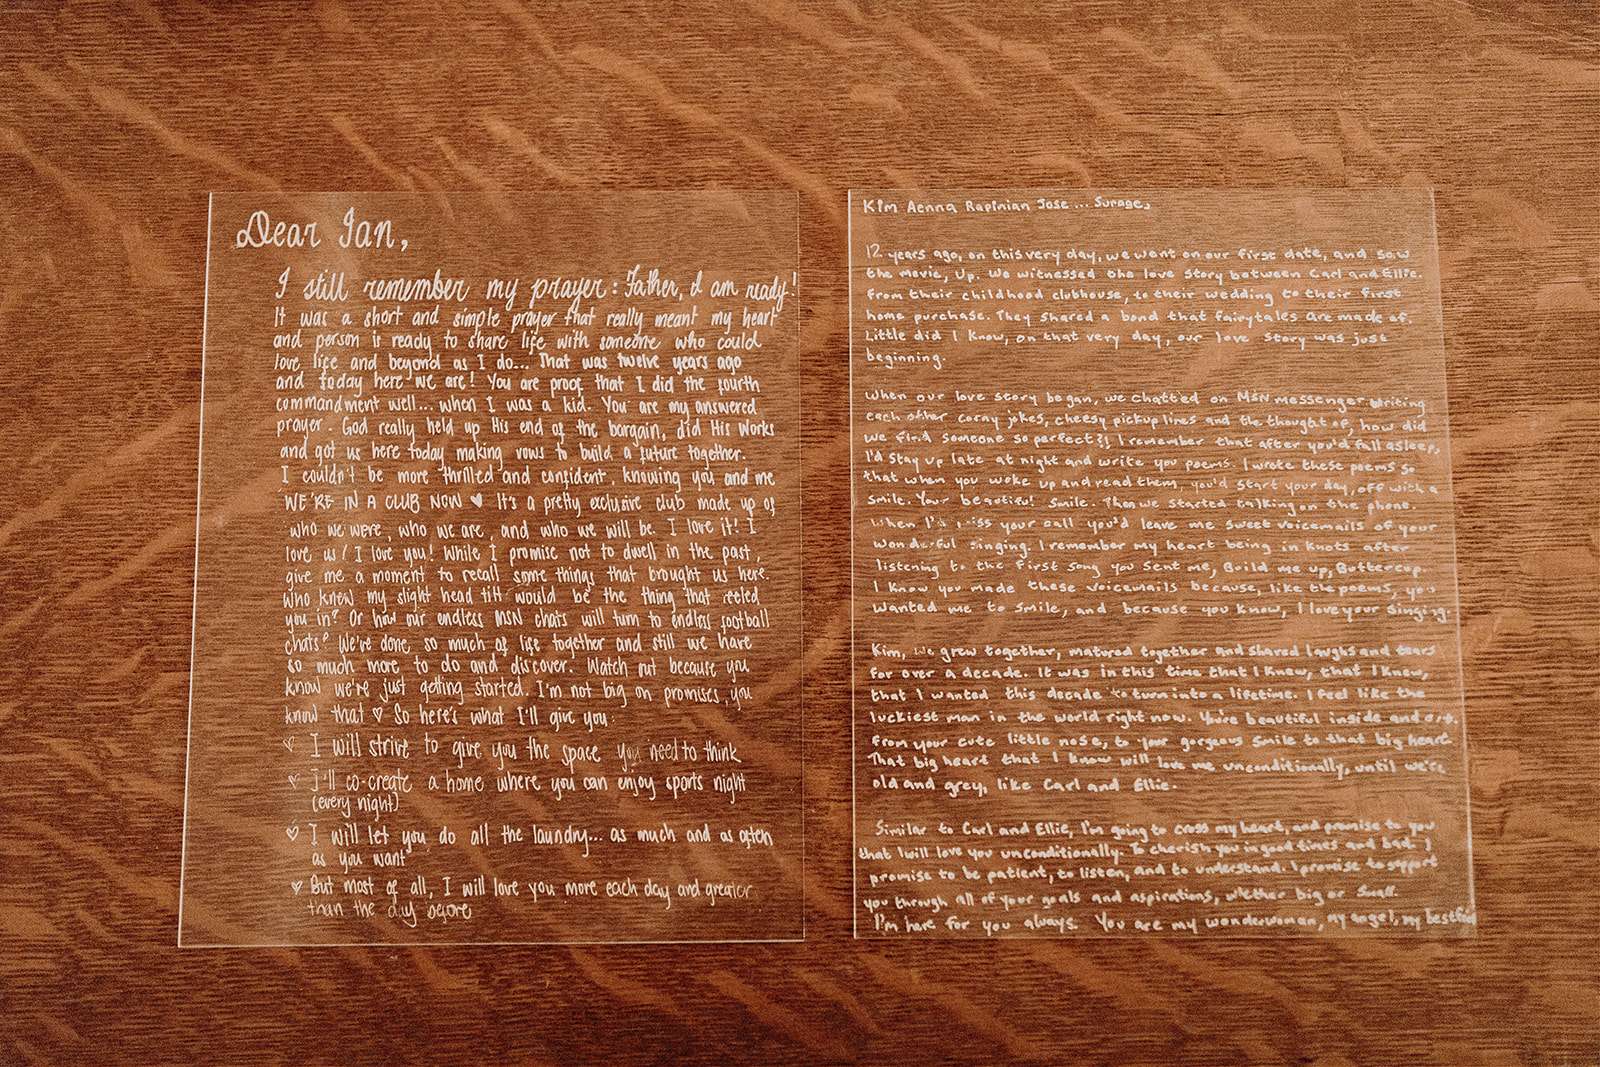 Dear Ian,
I still remember my prayer: Father, I am ready!
It was a short and simple prayer that really meant my heart
and person is ready to share life with someone who could
love life and beyond as I do... That was twelve years ago
and today here we are! You are proof that I did the fourth
commandment well... when I was a kid. You are my answered
prayer. God really held up His end of the bargain, did His works
and got us here today making vows to build a future together.
I couldn't be more thrilled and confident, knowing you and me
WE'RE IN A CLUB NOW ♥ It's a pretty exclusive club made up of
who we were, who we are, and who we will be. I love it! I
love us! I love you! While I promise not to dwell in the past,
give me a moment to recall some things that brought us here.
Who knew my slight head tilt would be the thing that reeled
you in? Or how our endless MSN chats will turn to endless football
chats? We've done so much of life together and still we have
so much more to do and discover. Watch out because you
know we're just getting started. I'm not big on promises, you
know that ♡ So here's what I'll give you:
♡ I will strive to give you the space you need to think
♡ I'll co-create a home where you can enjoy sports night
(every night)
♡ I will let you do all the laundry... as much and as often
as you want
♡ But most of all, I will love you more each day and greater
than the day before
Kim Aenna Rapinian Jose ... Surage,
12 years ago, on this very day, we went on our first date, and saw
the movie, Up. We witnessed the love story between Carl and Ellie.
From their childhood clubhouse, to their wedding to their first
home purchase. They shared a bond that fairytales are made of.
Little did I know, on that very day, our love story was just
beginning.
When our love story began, we chatted on MSN messenger writing
each other corny jokes, cheesy pickup lines and the thought of, how did
we find someone so perfect?! I remember that after you'd fall asleep,
I'd stay up late at night and write you poems. I wrote these poems so
that when you woke up and read them, you'd start your day, off with a
smile. Your beautiful smile. Then we started talking on the phone.
When I'd miss your call you'd leave me sweet voicemails of your
wonderful singing. I remember my heart being in knots after
listening to the first song you sent me, Build me up, Buttercup.
I know you made these voicemails because, like the poems, you
wanted me to smile, and because you know, I love your singing.
Kim, we grew together, matured together and shared laughs and tears
for over a decade. It was in this time that I knew, that I knew,
that I wanted this decade to turn into a lifetime. I feel like the
luckiest man in the world right now. You're beautiful inside and out.
From your cute little nose, to your gorgeous smile to that big heart.
That big heart that I know will love me unconditionally, until we're
old and grey, like Carl and Ellie.
Similar to Carl and Ellie, I'm going to cross my heart, and promise to you
that I will love you unconditionally. To cherish you in good times and bad. I
promise to be patient, to listen, and to understand. I promise to support
you through all of your goals and aspirations, whether big or small.
I'm here for you always. You are my wonderwoman, my angel, my bestfriend